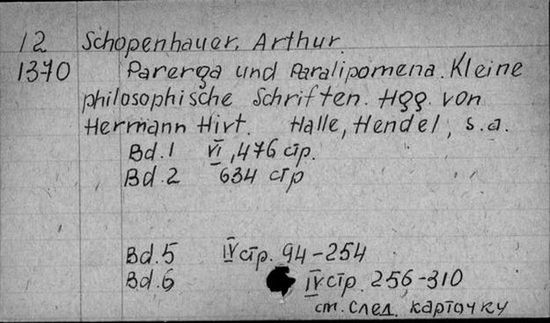 12 Schopenhauer, Arthur.
1370 Parerga und Paralipomena. Kleine
philosophische Schriften. Hgg. von
Hermann Hirt. Halle, Hendel, s.a.
Bd.1 VI, 476 стр.
Bd.2 634 стр
Bd.5 IV стр. 94-254
Bd.6 IV стр. 256-310
см. след. карточку